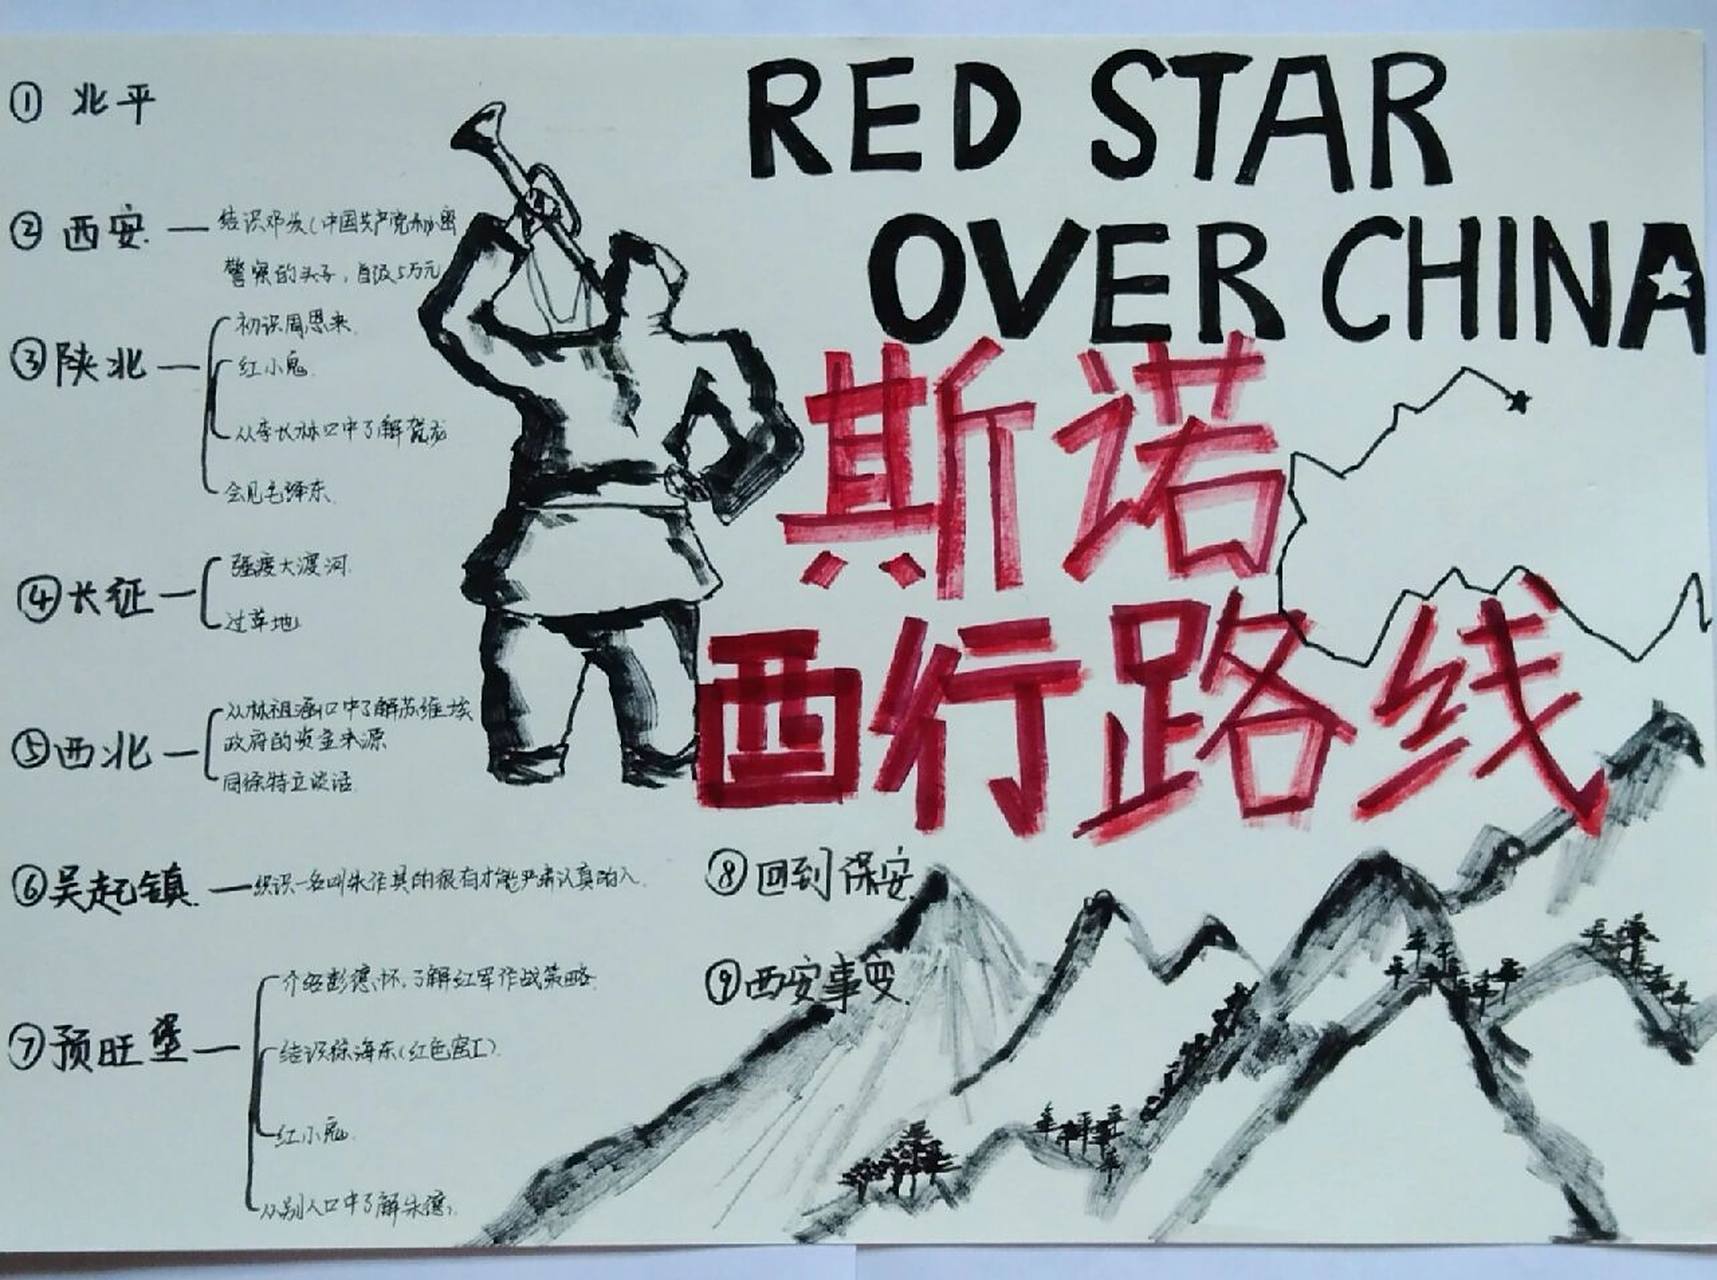 RED STAR
OVER CHINA
斯诺
西行路线
① 北平
② 西安
结识邓发(中国共产党秘密
警察的头子，首级5万元
③ 陕北
初识周恩来
红小鬼
从李长林口中了解贺龙
会见毛泽东
④ 长征
强渡大渡河
过草地
⑤ 西北
从林祖涵口中了解苏维埃
政府的资金来源
同徐特立谈话
⑥ 吴起镇
结识一名叫朱作其的很有才能严肃认真的人
⑦ 预旺堡
介绍彭德怀,了解红军作战策略
结识徐海东(红色窑工)
红小鬼
从别人口中了解朱德
⑧ 回到保安
⑨ 西安事变